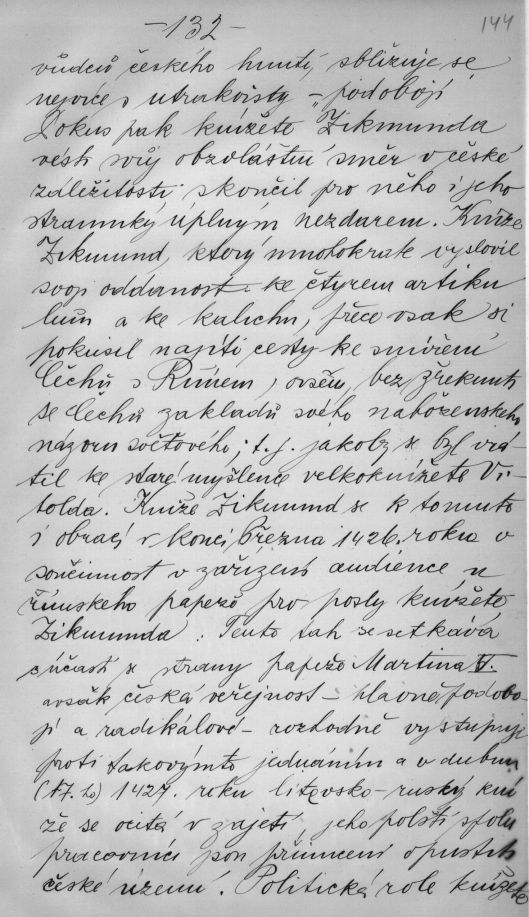 -132-
144
vůdců českého hnutí, sbližuje se
nejvíce s utrakvisty - „podobojí
Pokus pak knížete Zikmunda
vésti svůj obzvláštní směr v české
záležitosti skončil pro něho i jeho
stranníky úplným nezdarem. Kníže
Zikmund, který mnohokrak vyslovil
svoji oddanost ke čtyrem artiku
lům a ke kalichu, přece však si
pokusil najíti cesty ke smíření
Čechů s Římem, ovšem, bez zřeknutí
se Čechů zakladů svého naboženskeho
nazoru světoveho; t.j. jakoby se byl vrá-
til ke staré myšlence velkoknížete Vi-
tolda. Kníže Zikmund se k tomuto
i obrací v konci března 1426. roku o
součinnost v zařízení audience u
římskeho papeže pro posly knížete
Zikmunda. Tento tah se setkává
s účastí se strany papeže Martina V.
avšak česká veřejnost - hlavně podobo-
jí a radikálové - rozhodně vystupují
proti takovýmto jednáním a v dubnu
(17. ho) 1427. roku litevsko-ruský kní
že se ocitá v zajetí, jeho polští spolu
pracovníci jsou přinuceni opustiti
české území. Politická role knížete